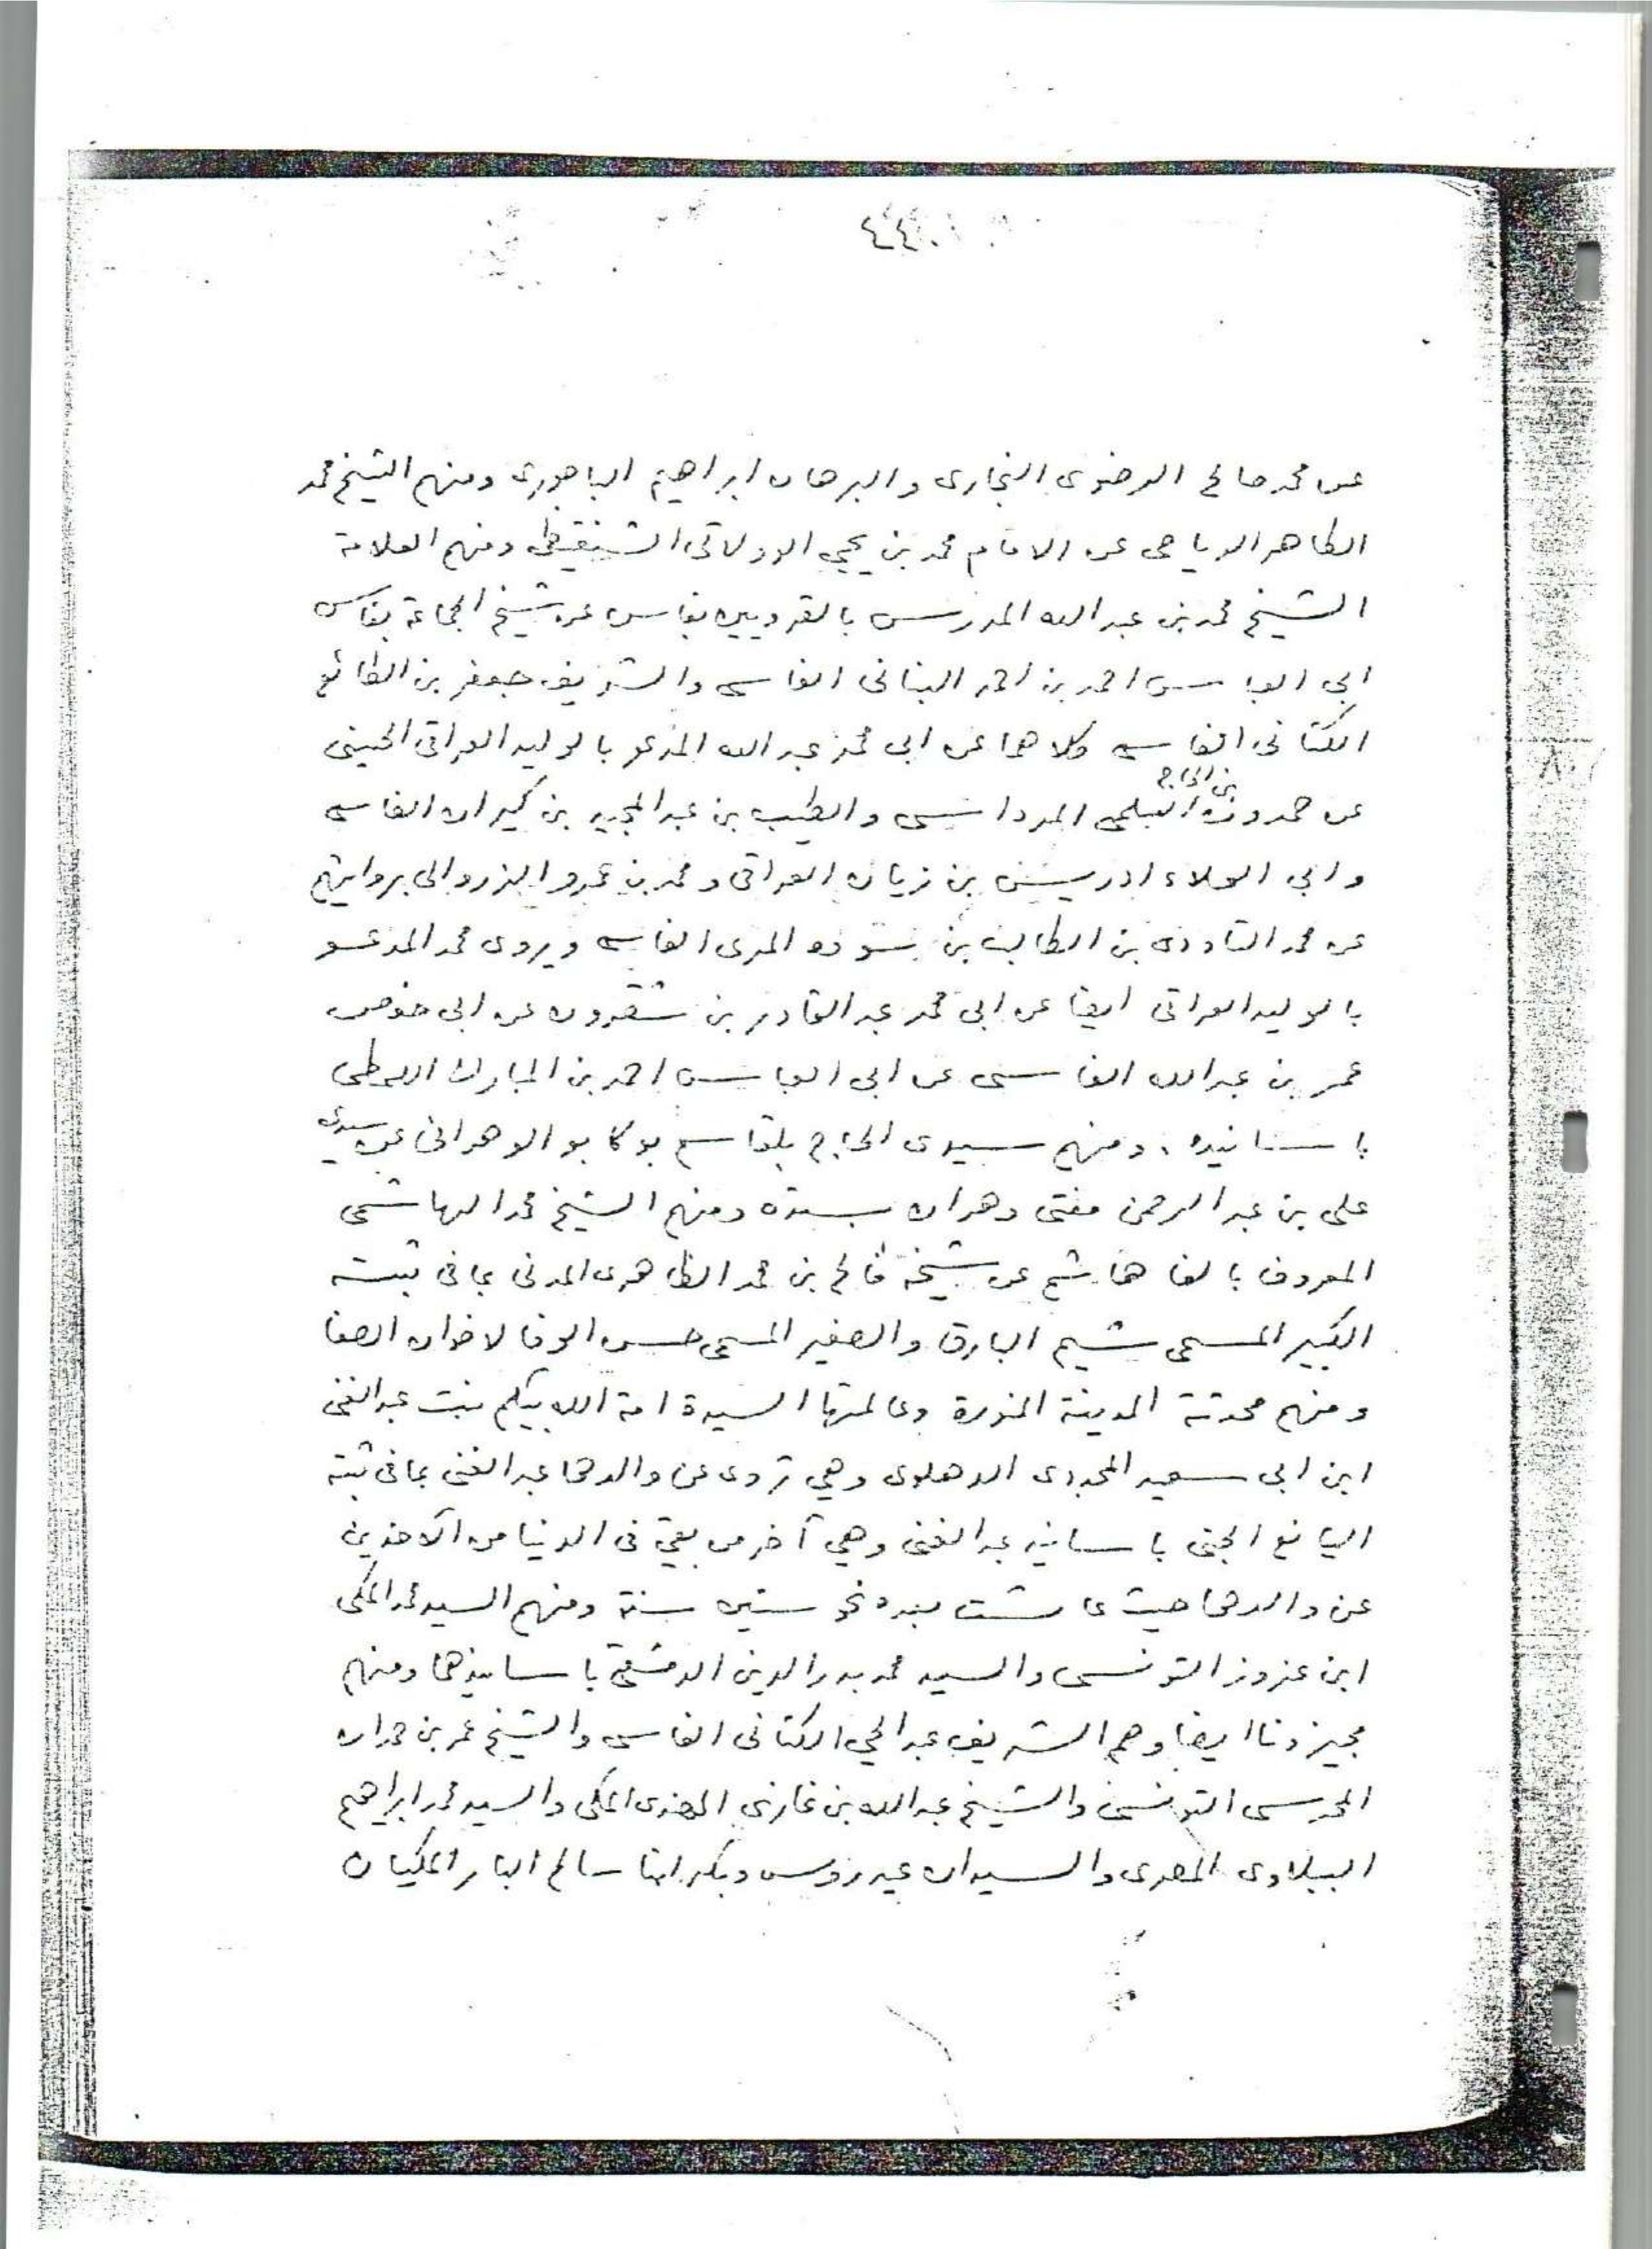 ٤٤٠
عن محمد صالح الرضوى البخارى والبرهان ابراهيم الباجورى ومنهم الشيخ محمد
الطاهر الرياحى عن الامام محمد بن يحيى الولاتى الشنقيطى ومنهم العلامة
الشيخ محمد بن عبد الله المدرس بالقرويين بفاس عن شيخ الجماعة بفاس
ابى العباس احمد بن احمد البنانى الفاسى والشريف جعفر بن الطائع
الكتانى الفاسى وكلاهما عن ابى محمد عبد الله المدعو بالوليد العراقى الحسينى
عن حمدون بن الحاج السلمى المرداسى والطيب بن عبد المجيد بن كيران الفاسى
وابى العلاء ادريس بن زيان العراقى ومحمد بن عمرو الزروالى بروايتهم
عن محمد التاودى بن الطالب بن سوده المرى الفاسى ويروى محمد المدعو
بالوليد العراقى ايضا عن ابى محمد عبد القادر بن شقرون عن ابى حفص
عمر بن عبد الله الفاسى عن ابى العباس احمد بن المبارك اللمطى
باسانيده . ومنهم سيدى الحاج بلقاسم بوكابو الوهرانى عن سيدى
على بن عبد الرحمن مفتى وهران بسنده ومنهم الشيخ محمد الهاشمى
المعروف بالفا هاشم عن شيخه فالح بن محمد الظاهرى المدنى بما فى ثبته
الكبير المسمى شيم البارق والصغير المسمى حسن الوفا لاخوان الصفا
ومنهم محدثة المدينة المنورة وعالمتها السيدة امة الله بيگم بنت عبد الغنى
ابن ابى سعيد المجددى الدهلوى وهي تروى عن والدها عبد الغنى بما فى ثبته
اليانع الجنى باسانيد عبد الغنى وهي آخر من بقي فى الدنيا من الآخذين
عن والدها حيث عاشت بعده نحو ستين سنة ومنهم السيد محمد المكى
ابن عزوز التونسى والسيد محمد بدر الدين الدمشقى باسانيدهما ومنهم
مجيزونا ايضا وهم الشريف عبد الحي الكتانى الفاسى والشيخ عمر بن حمدان
المحرسى التونسى والشيخ عبد الله بن غازى الهندى المكى والسيد محمد ابراهيم
الببلاوى المصرى والسيدان عيدروس وبكر ابنا سالم البار المكيان